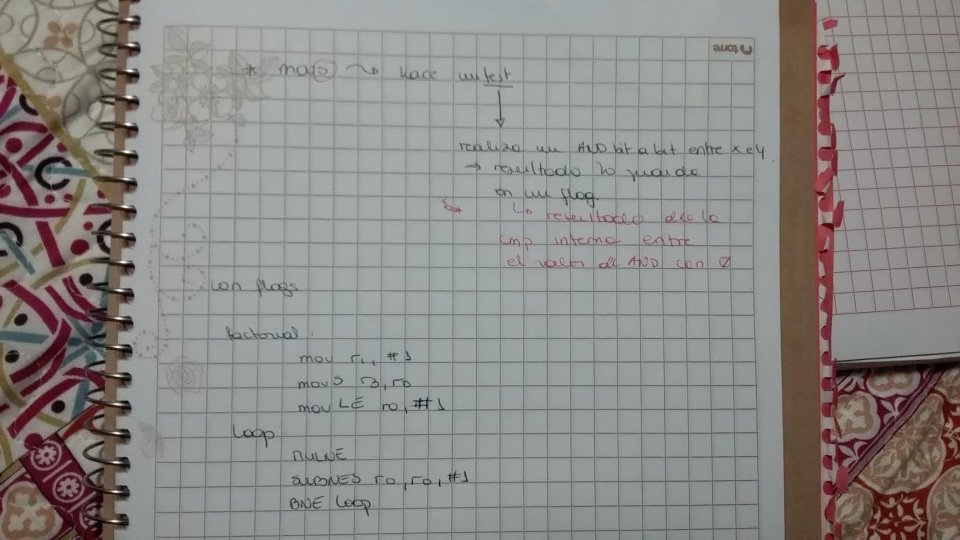 * movs ~> hace un test
realiza un AND bit a bit entre x e y.
→ resultado lo guarda
en un flag
↳ resultado de la
cmp interna entre
el valor de AND con Ø
con flags
factorial:
mov r1, #1
movS r3, r0
mov LE r0, #1
loop:
MULNE
SUBNES r0, r0, #1
BNE loop